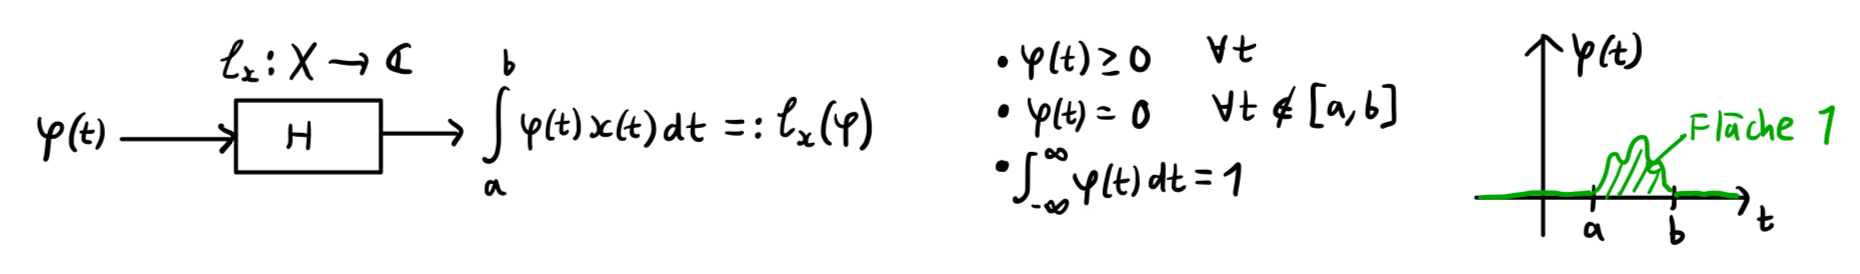 ℓₓ : X → ℂ
φ(t) → H → ∫ₐᵇ φ(t) x(t) dt =: ℓₓ(φ)
• φ(t) ≥ 0 ∀t
• φ(t) = 0 ∀t ∉ [a, b]
• ∫₋∞^∞ φ(t) dt = 1
φ(t)
Fläche 1
a b t